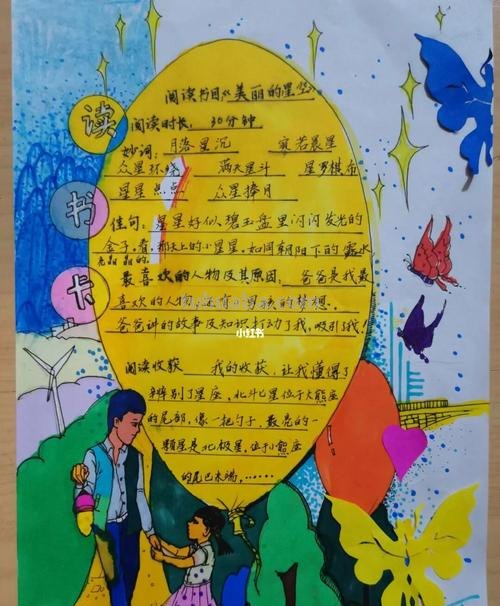 读书卡
阅读书目:《美丽的星空》
阅读时长: 30分钟
妙词: 月落星沉 寅若晨星
众星环绕 满天星斗 星罗棋布
星星点点 众星捧月
佳句: 星星好似碧玉盘里闪闪发光的
金子,看,那天上的小星星,如同朝阳下的露水
亮晶晶的.
最喜欢的人物及其原因: 爸爸是我最
喜欢的人物, 孩的梦想.
爸爸讲的故事及知识打动了我,吸引了我!
阅读收获 我的收获,让我懂得了
辨别了星座,北斗七星位于大熊座
的尾部,像一把勺子,最亮的一
颗星是北极星,位于小熊座
的尾巴末端,……
小红书